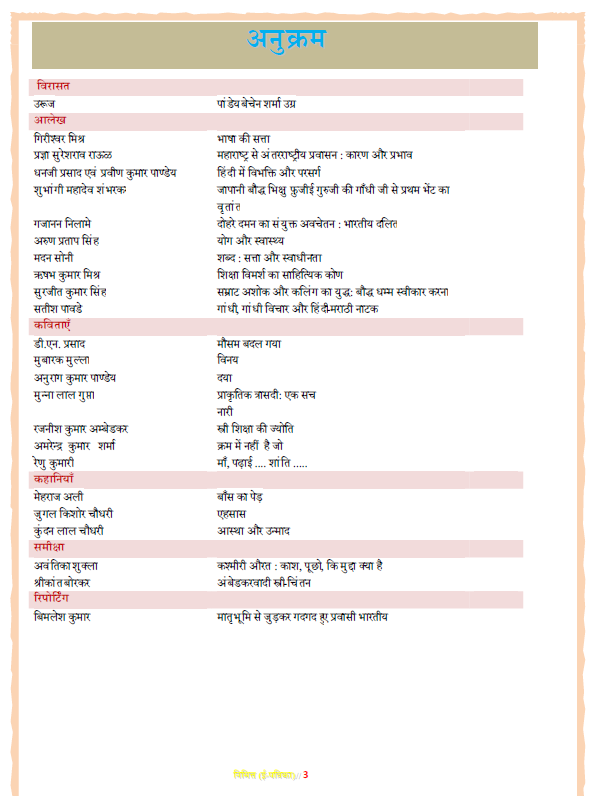 अनुक्रम
विरासत
उरूज पांडेय बेचेन शर्मा उग्र
आलेख
गिरीश्वर मिश्र भाषा की सत्ता
प्रज्ञा सुरेशराव राऊळ महाराष्ट्र से अंतरराष्ट्रीय प्रवासन : कारण और प्रभाव
धनजी प्रसाद एवं प्रवीण कुमार पाण्डेय हिंदी में विभक्ति और परसर्ग
शुभांगी महादेव शंभरकर जापानी बौद्ध भिक्षु फ़ुजीई गुरुजी की गाँधी जी से प्रथम भेंट का
वृतांत
गजानन निलामे दोहरे दमन का संयुक्त अवचेतन : भारतीय दलित
अरुण प्रताप सिंह योग और स्वास्थ्य
मदन सोनी शब्द : सत्ता और स्वाधीनता
ऋषभ कुमार मिश्र शिक्षा विमर्श का साहित्यिक कोण
सुरजीत कुमार सिंह सम्राट अशोक और कलिंग का युद्ध: बौद्ध धम्म स्वीकार करना
सतीश पावडे गांधी, गांधी विचार और हिंदी-मराठी नाटक
कविताएँ
डी.एन. प्रसाद मौसम बदल गया
मुबारक मुल्ला विनय
अनुराग कुमार पाण्डेय दया
मुन्ना लाल गुप्ता प्राकृतिक त्रासदी: एक सच
नारी
रजनीश कुमार अम्बेडकर स्त्री शिक्षा की ज्योति
अमरेन्द्र कुमार शर्मा क्रम में नहीं है जो
रेणु कुमारी माँ, पढ़ाई .... शांति .....
कहानियाँ
मेहराज अली बाँस का पेड़
जुगल किशोर चौधरी एहसास
कुंदन लाल चौधरी आस्था और उन्माद
समीक्षा
अवंतिका शुक्ला कश्मीरी औरत : काश, पूछो, कि मुद्दा क्या है
श्रीकांत बोरकर अंबेडकरवादी स्त्री-चिंतन
रिपोर्टिंग
बिमलेश कुमार मातृभूमि से जुड़कर गदगद हुए प्रवासी भारतीय
(ई-पत्रिका)// 3